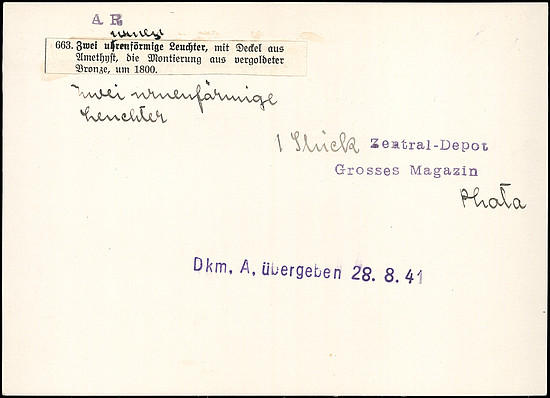 A R
urnen
663. Zwei uhrenförmige Leuchter, mit Deckel aus
Amethyst, die Montierung aus vergoldeter
Bronze, um 1800.
Zwei urnenförmige
Leuchter
1 Stück Zentral-Depot
Grosses Magazin
Photo
Dkm. A. übergeben 28. 8. 41